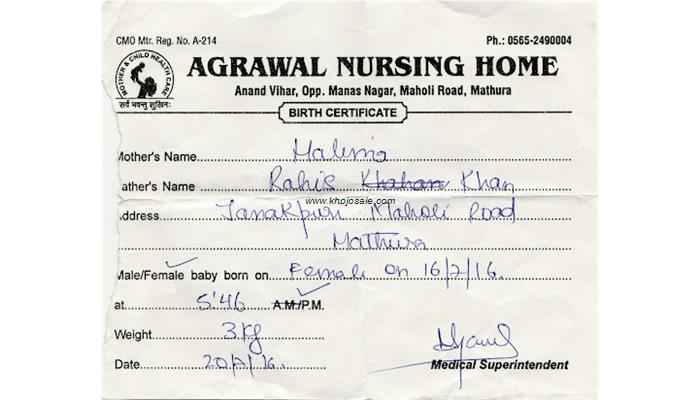 CMO Mtr. Reg. No. A-214 Ph.: 0565-2490004
MOTHER & CHILD HEALTH CARE
सर्वे भवन्तु सुखिनः
AGRAWAL NURSING HOME
Anand Vihar, Opp. Manas Nagar, Maholi Road, Mathura
BIRTH CERTIFICATE
Mother's Name Halima
Father's Name Rahis Khahan Khan
www.khojosale.com
Address Janakpuri Maholi Road
Mathura
Male/Female baby born on Female on 16/7/16.
at 5'46 A.M./P.M.
Weight 3 Kg
Date 20/7/16.
Medical Superintendent